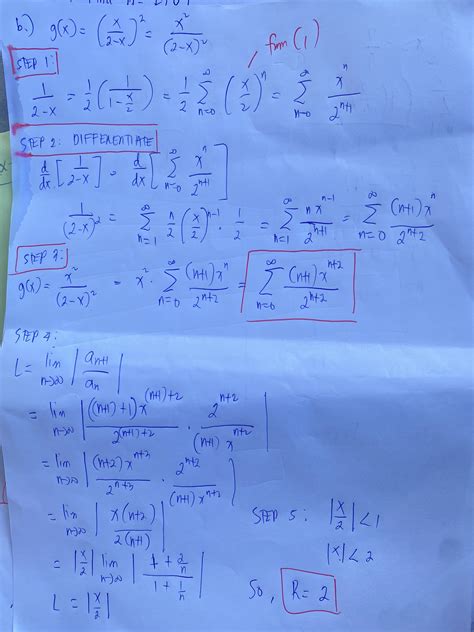 b.) g(x) = (x/(2-x))² = x²/(2-x)²
from (1)
STEP 1:
1/(2-x) = 1/2 (1/(1-x/2)) = 1/2 ∑_{n=0}^{∞} (x/2)^n = ∑_{n=0}^{∞} x^n/2^{n+1}
STEP 2: DIFFERENTIATE
d/dx [1/(2-x)] = d/dx [∑_{n=0}^{∞} x^n/2^{n+1}]
1/(2-x)² = ∑_{n=1}^{∞} n/2 (x/2)^{n-1} · 1/2 = ∑_{n=1}^{∞} n x^{n-1}/2^{n+1} = ∑_{n=0}^{∞} (n+1)x^n/2^{n+2}
STEP 3:
g(x) = x²/(2-x)² = x² · ∑_{n=0}^{∞} (n+1)x^n/2^{n+2} = ∑_{n=0}^{∞} (n+1)x^{n+2}/2^{n+2}
STEP 4:
L = lim_{n→∞} |a_{n+1}/a_n|
= lim_{n→∞} |((n+1)+1)x^{(n+1)+2}/2^{(n+1)+2} · 2^{n+2}/((n+1)x^{n+2})|
= lim_{n→∞} |(n+2)x^{n+3}/2^{n+3} · 2^{n+2}/((n+1)x^{n+2})|
= lim_{n→∞} |x(n+2)/2(n+1)|
= |x/2| lim_{n→∞} |(1+2/n)/(1+1/n)|
L = |x/2|
STEP 5: |x/2| < 1
|x| < 2
So, R = 2